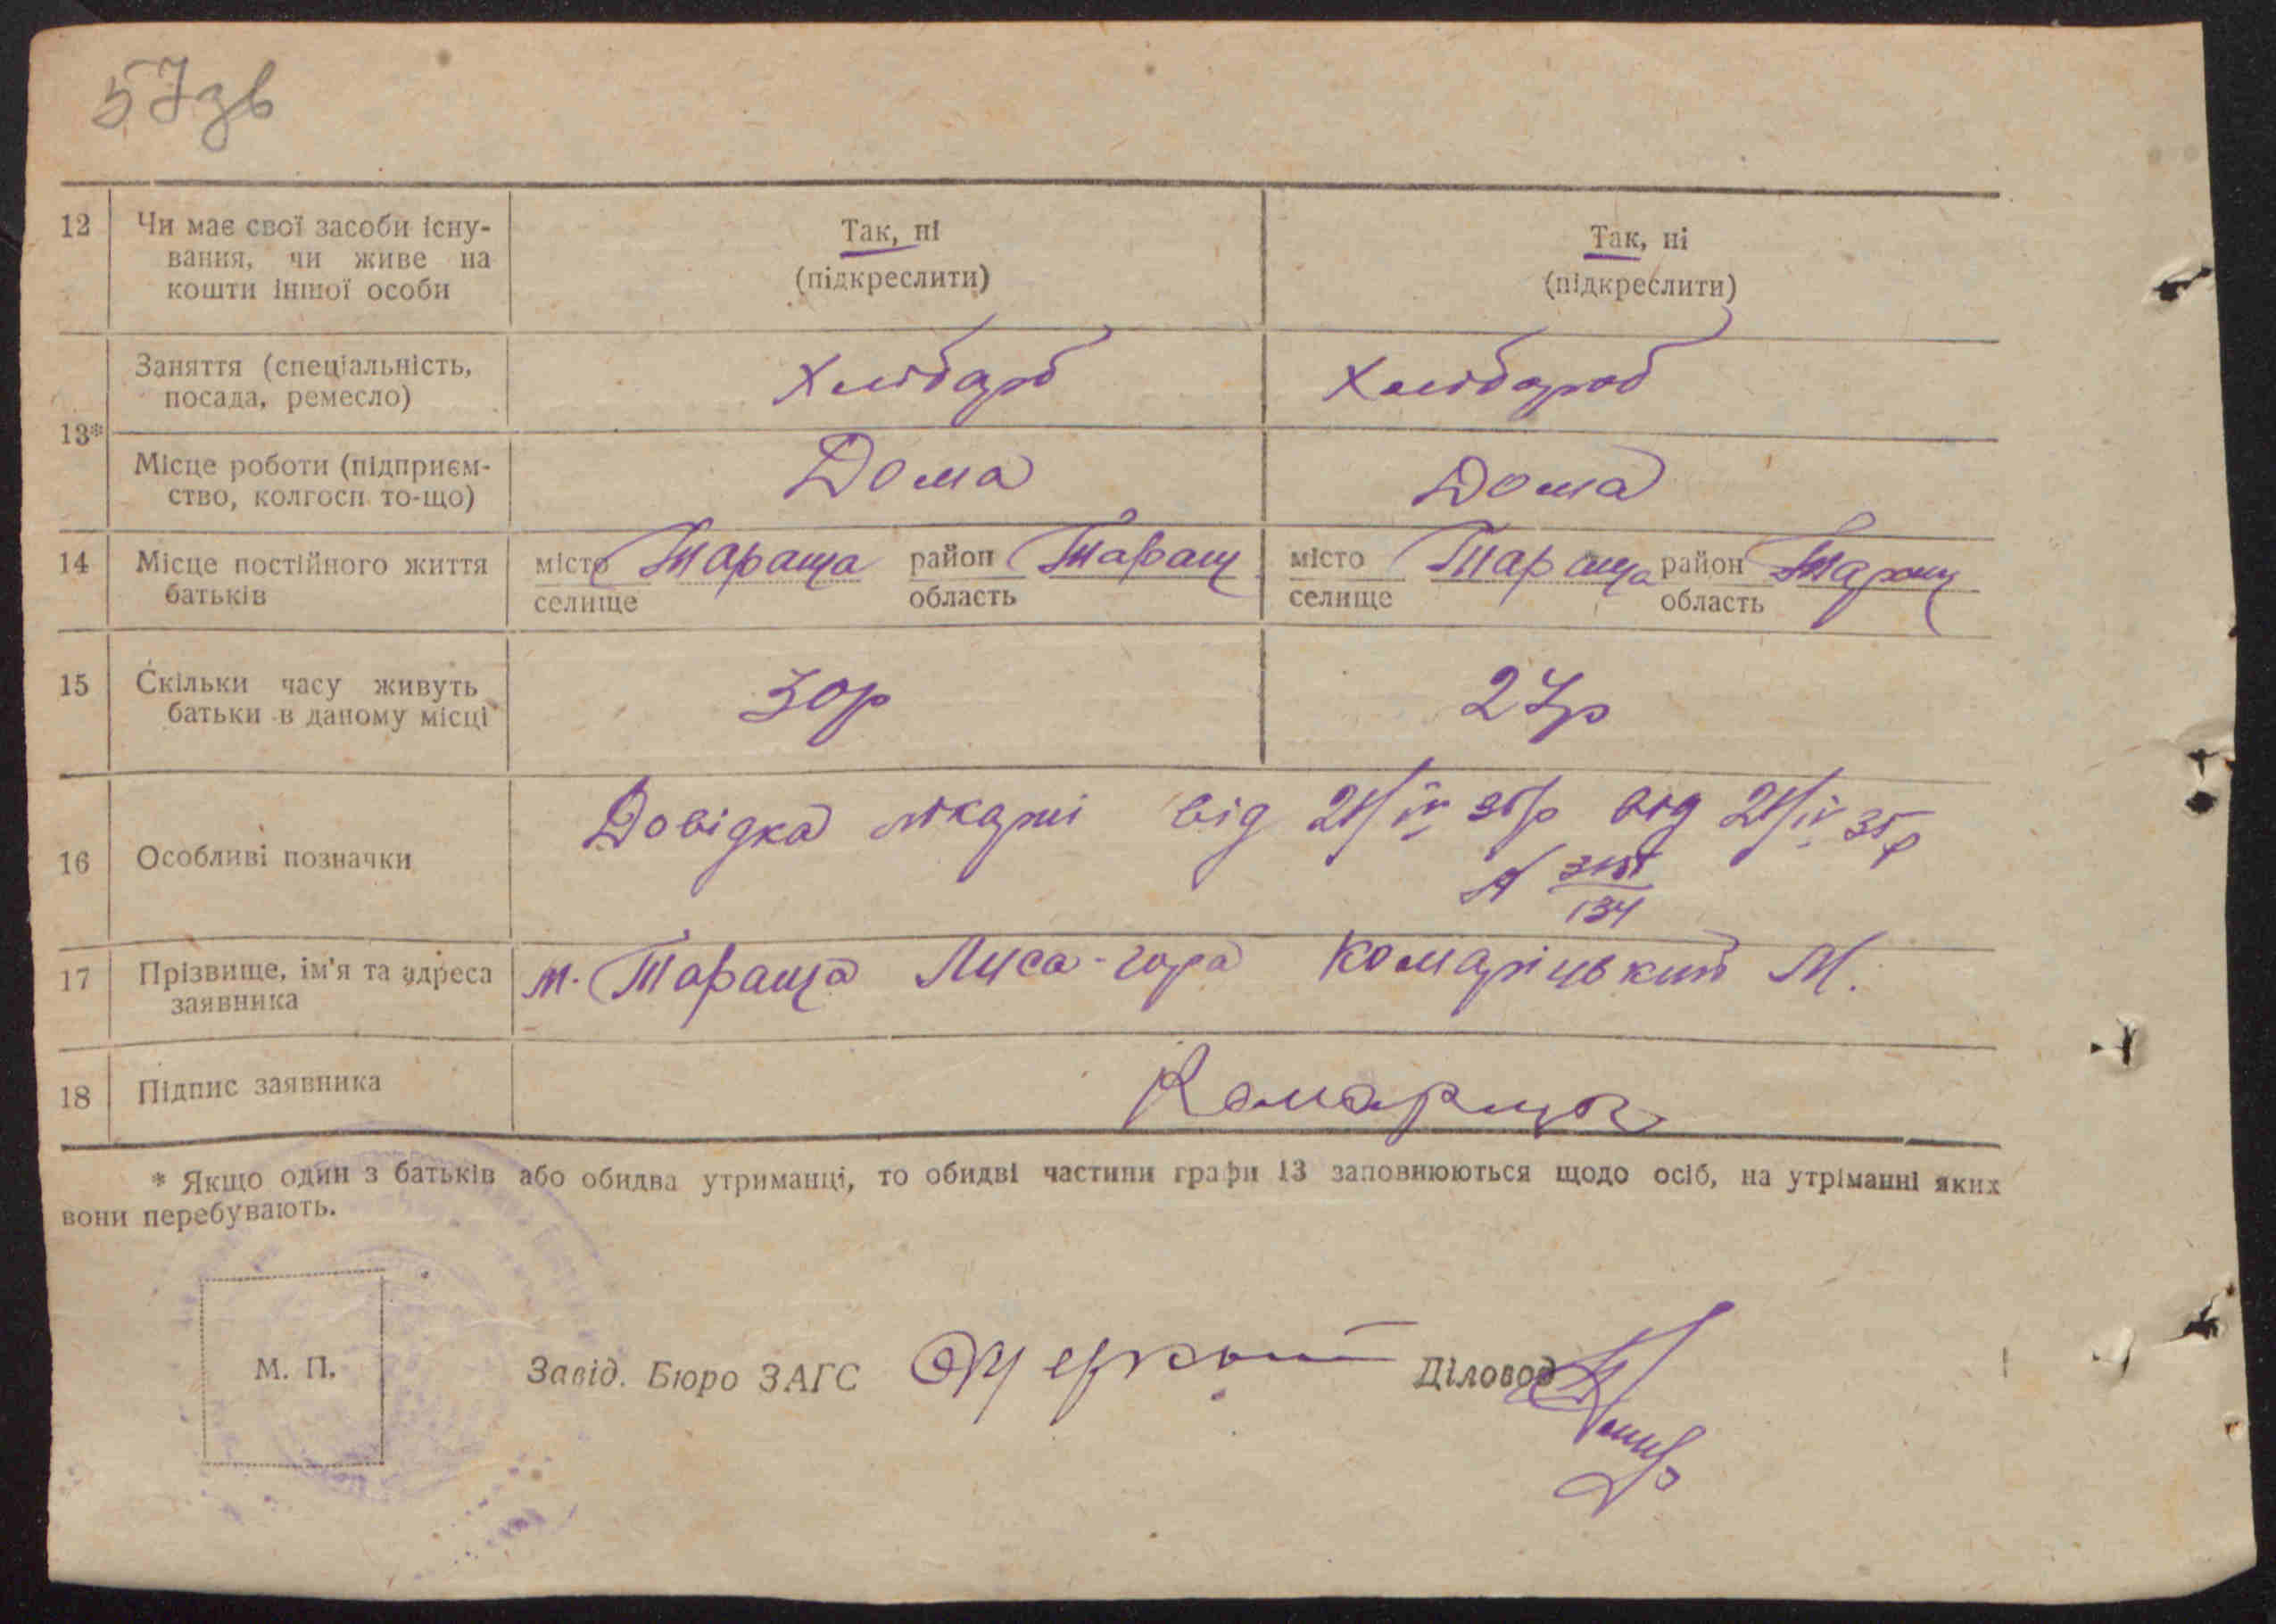 57зв
12 Чи має свої засоби існу- Так, ні Так, ні
вання, чи живе на (підкреслити) (підкреслити)
кошти іншої особи
Заняття (спеціальність, Хлібороб Хлібороб
посада, ремесло)
13*
Місце роботи (підприєм- Дома Дома
ство, колгосп то-що)
14 Місце постійного життя місто Тараща район Таращ місто Тараща район Таращ
батьків селище область селище область
15 Скільки часу живуть 30р 27р
батьки в даному місці
16 Особливі позначки Довідка лікарні від 21/IV 35р від 21/IV 35р
134
17 Прізвище, ім'я та адреса м. Тараща Лиса-гора Комаріцький М.
заявника
18 Підпис заявника
* Якщо один з батьків або обидва утриманці, то обидві частини графи 13 заповнюються щодо осіб, на утріманні яких
вони перебувають.
М. П. Завід. Бюро ЗАГС Діловод